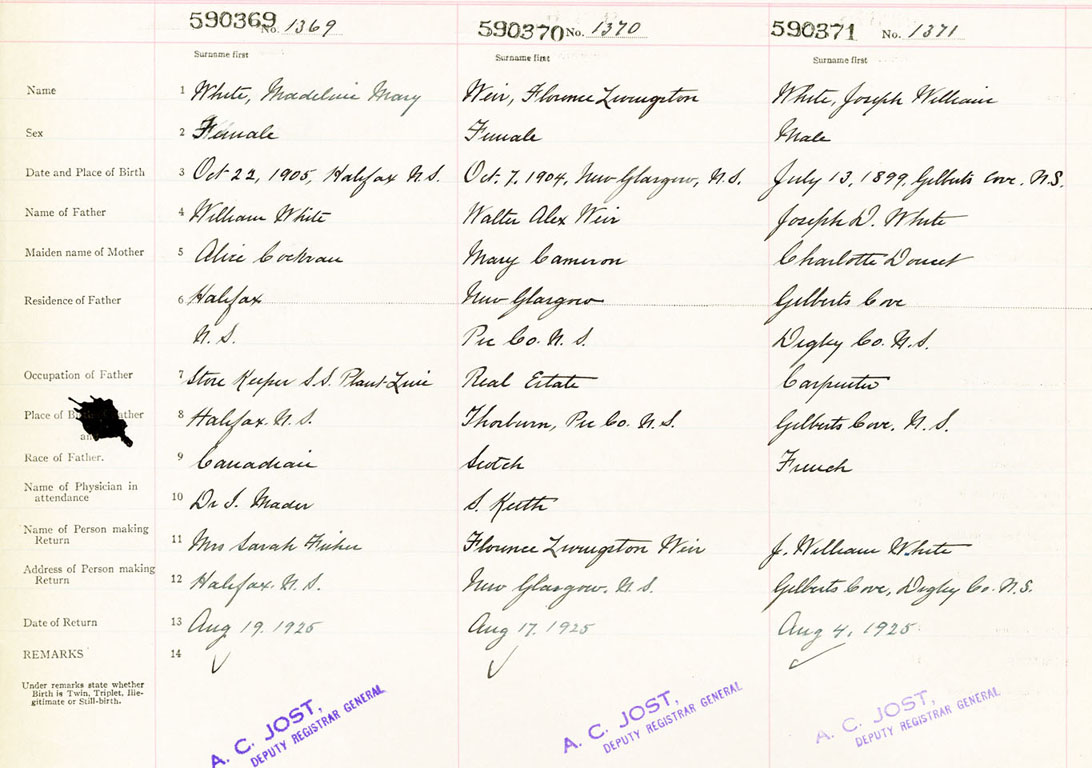 590369 No. 1369 590370 No. 1370 590371 No. 1371
Surname first Surname first Surname first
Name 1 White, Madeline Mary Weir, Florence Livingston White, Joseph William
Sex 2 Female Female Male
Date and Place of Birth 3 Oct 22, 1905, Halifax N.S. Oct. 7. 1904, New Glasgow, N.S. July 13, 1899, Gilberts Cove. N.S.
Name of Father 4 William White Walter Alex Weir Joseph D. White
Maiden name of Mother 5 Alice Cockran Mary Cameron Charlotte Doucet
Residence of Father 6 Halifax New Glasgow Gilberts Cove
N.S. Pic Co. N.S. Digby Co. N.S.
Occupation of Father 7 Store Keeper S.S. Plant Line Real Estate Carpenter
Place of Father 8 Halifax. N.S. Thorburn, Pic Co. N.S. Gilberts Cove, N.S.
Race of Father. 9 Canadian Scotch French
Name of Physician in
attendance 10 Dr I. Mader S. Keith
Name of Person making
Return 11 Mrs Sarah Fisher Florence Livingston Weir J. William White
Address of Person making
Return 12 Halifax. N.S. New Glasgow. N.S. Gilberts Cove, Digby Co. N.S.
Date of Return 13 Aug 19. 1925 Aug 17. 1925 Aug 4, 1925
REMARKS 14
Under remarks state whether
Birth is Twin, Triplet, Ille-
gitimate or Still-birth.
A. C. JOST, A. C. JOST, A. C. JOST,
DEPUTY REGISTRAR GENERAL DEPUTY REGISTRAR GENERAL DEPUTY REGISTRAR GENERAL